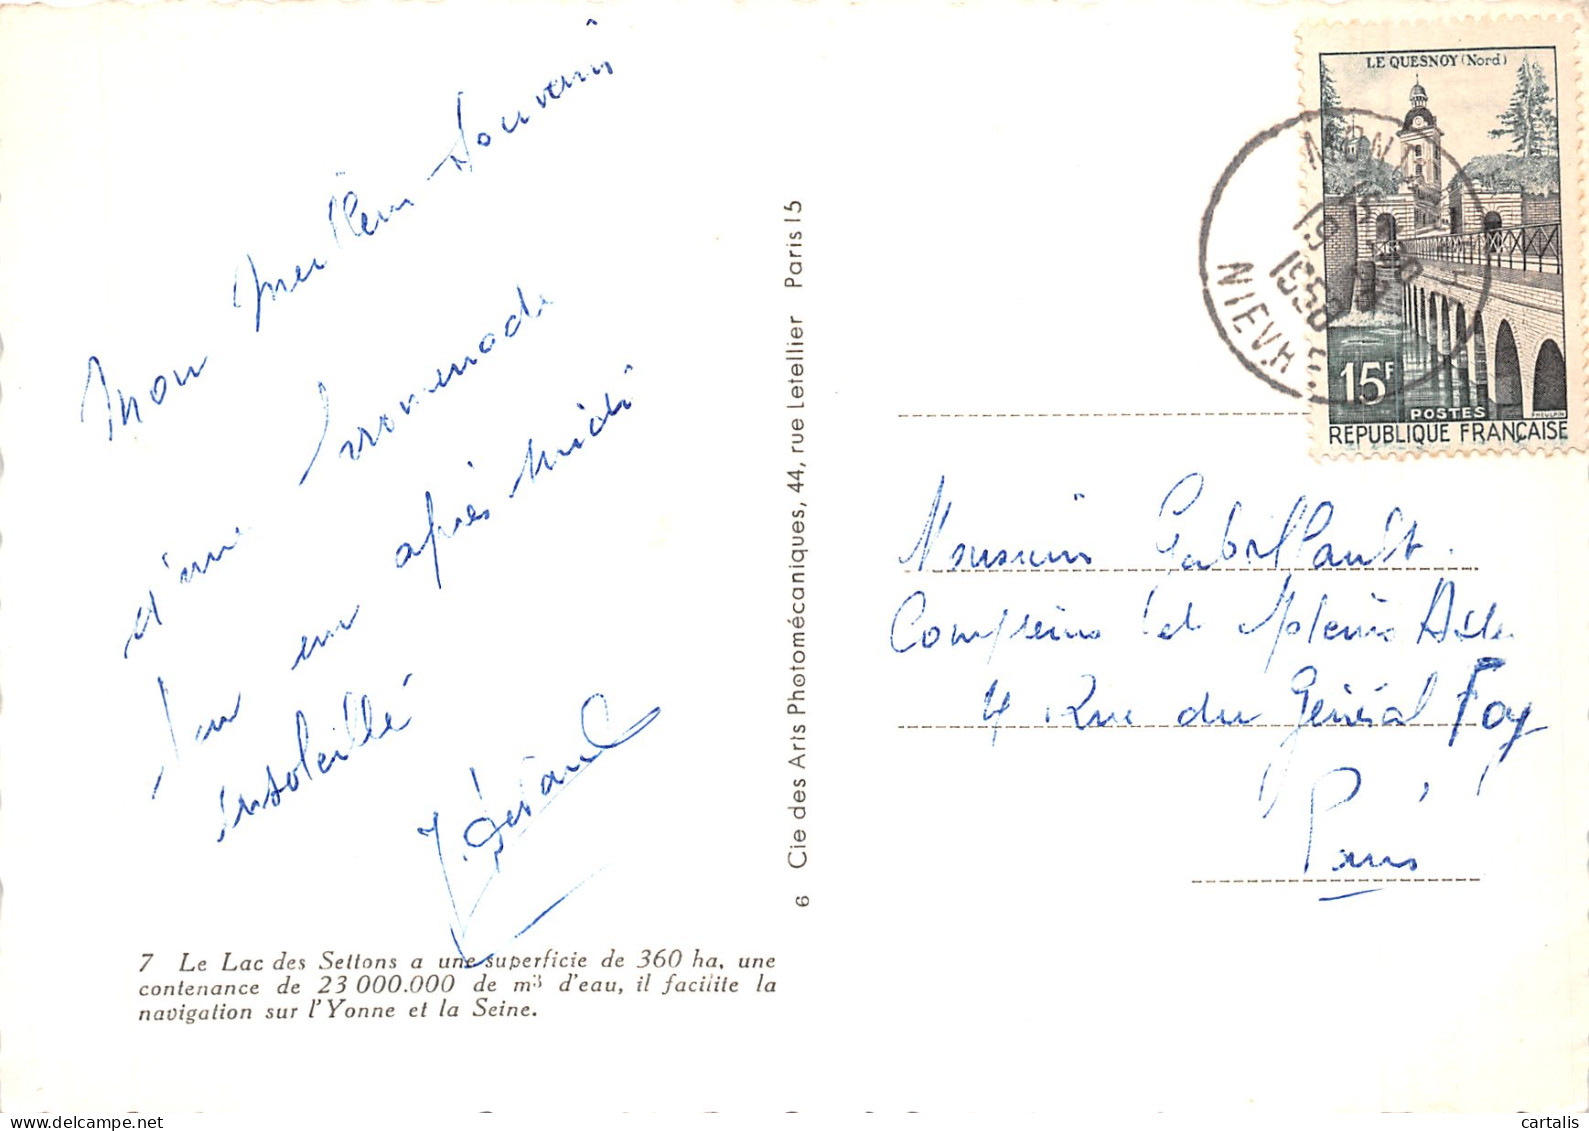 Mon meilleur souvenir
d'une promenade
en après midi
ensoleillé
7 Le Lac des Settons a une superficie de 360 ha, une
contenance de 23 000.000 de m3 d'eau, il facilite la
navigation sur l'Yonne et la Seine.
6 Cie des Arts Photomécaniques, 44, rue Letellier Paris 15
LE QUESNOY (Nord)
15F
POSTES
RÉPUBLIQUE FRANÇAISE
1958
NIEVRE
Monsieur Gabillault.
4 Rue du Général Foy
Paris